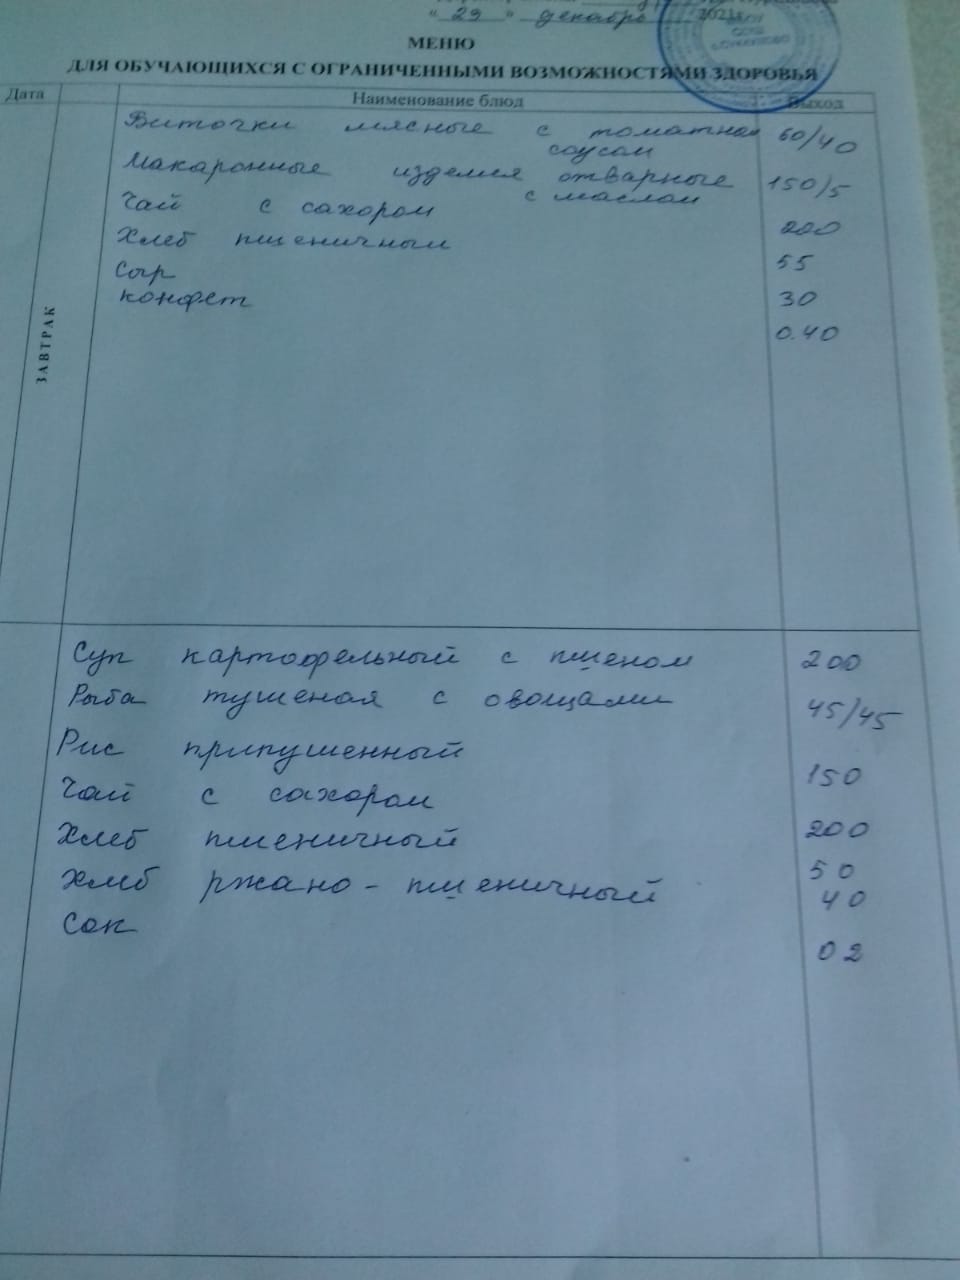 " 29 " декабрь 2021г
МЕНЮ
ДЛЯ ОБУЧАЮЩИХСЯ С ОГРАНИЧЕННЫМИ ВОЗМОЖНОСТЯМИ ЗДОРОВЬЯ
Дата Наименование блюд Выход
ЗАВТРАК
Биточки мясные с томатном соусом 60/40
Макаронные изделия отварные с маслом 150/5
Чай с сахором 200
Хлеб пшеничный 55
Сыр 30
конфет 0.40
Суп картофельный с пшеном 200
Рыба тушеная с овощами 45/45
Рис припушенный 150
Чай с сахором 200
Хлеб пшеничный 50
Хлеб ржано-пшеничный 40
Сок 02